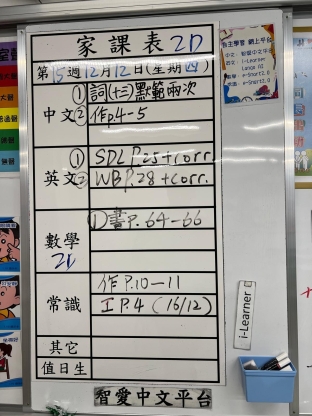 家課表 2D
第15週12月12日(星期四)
中文 ①詞(十三)點範兩次
②作p4-5
英文 ①SDL P.25+corr.
②WB P.28+corr.
數學 2D ①書P.64-66
常識 作P.10-11
工P.4 (16/12)
其它
值日生
智愛中文平台
自主學習 網上平台
i-Learner